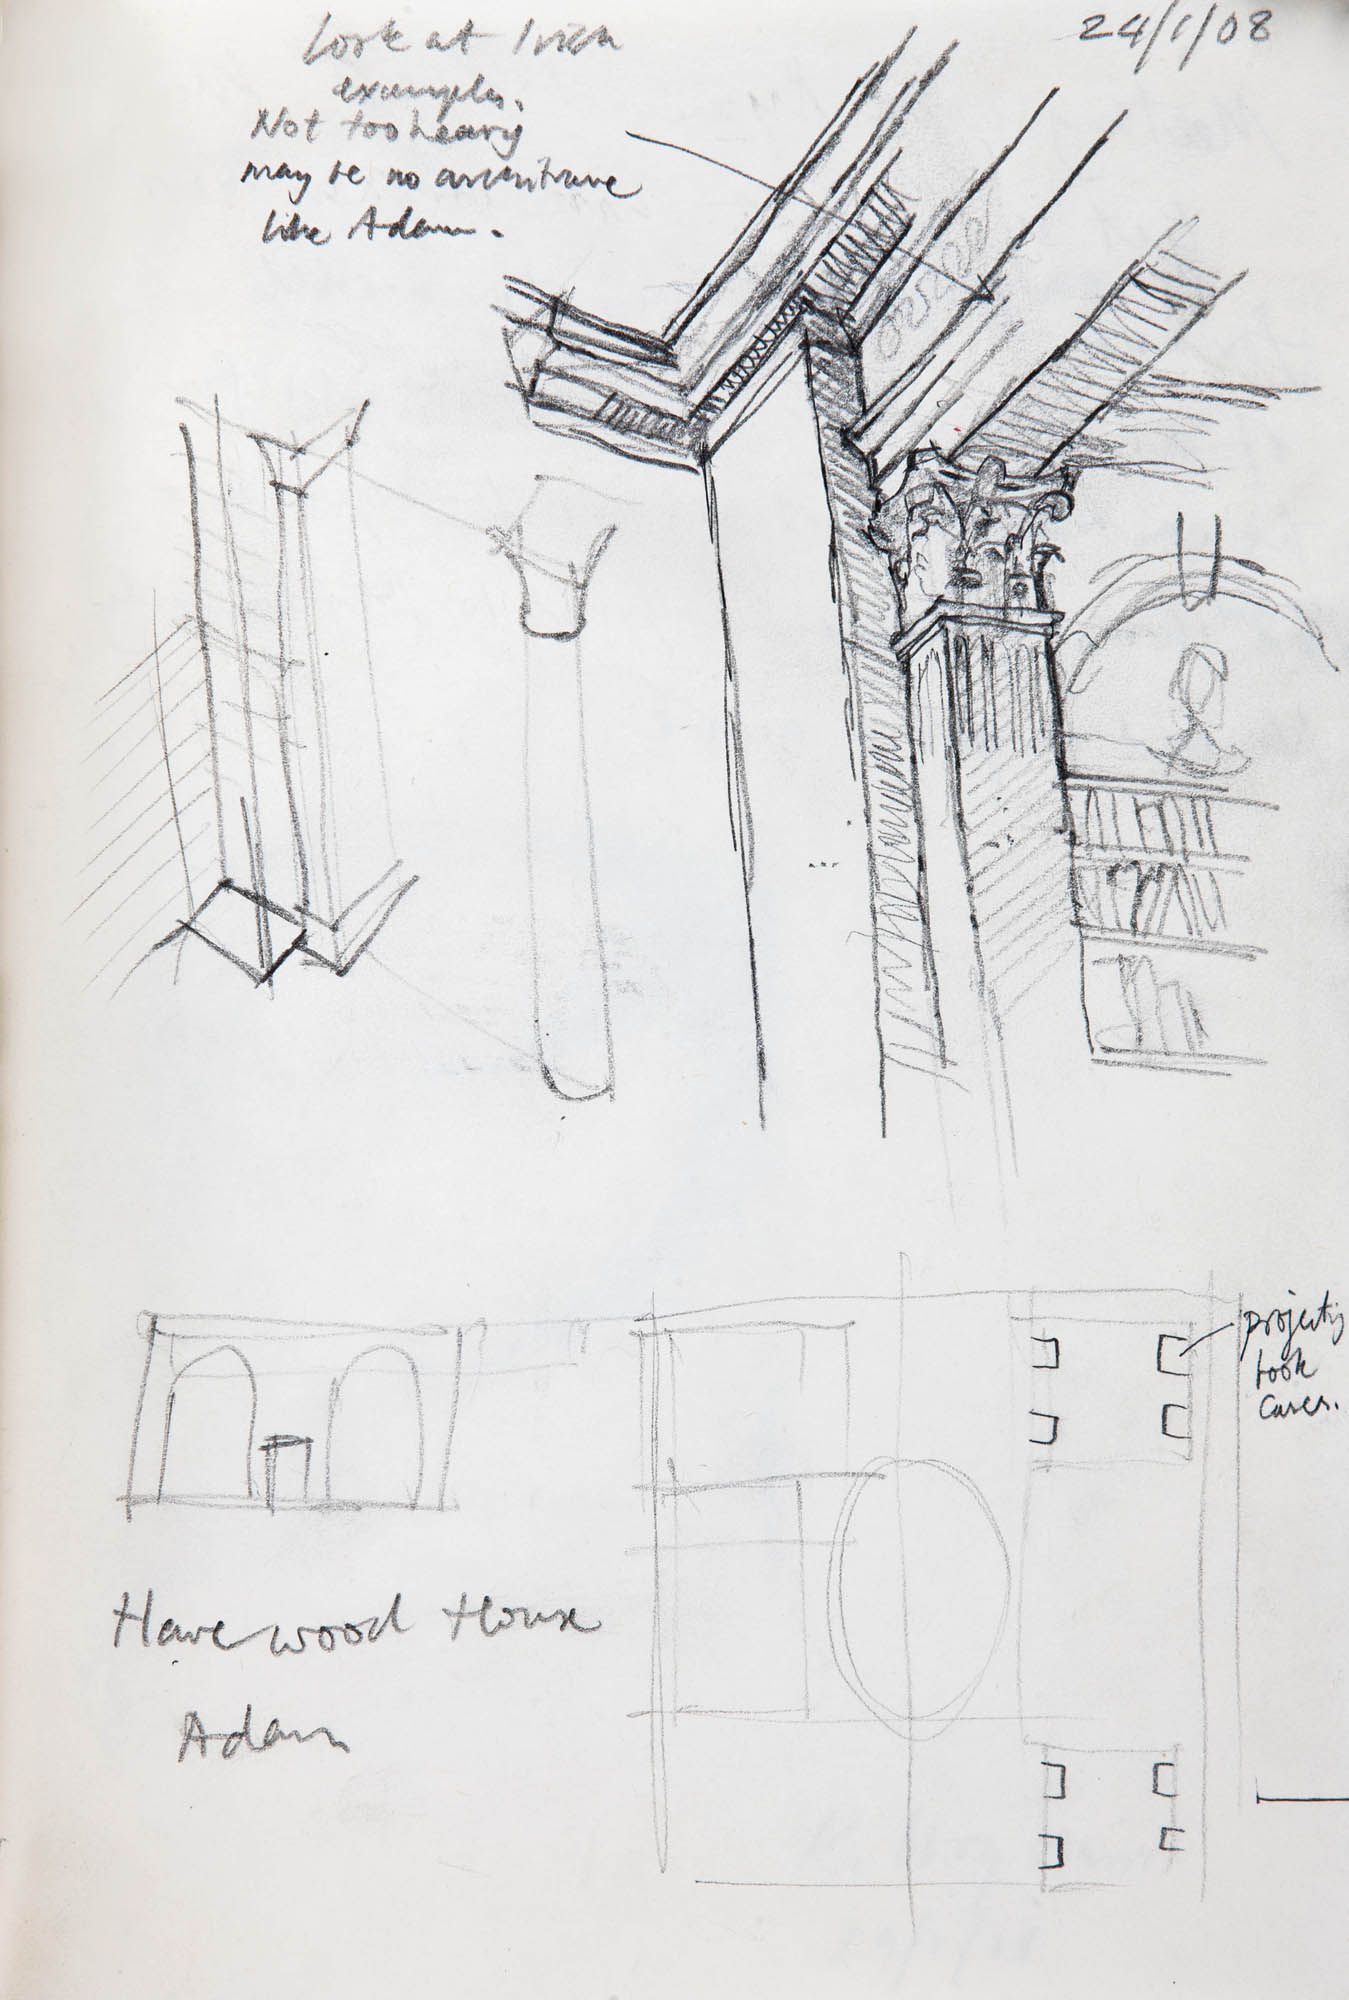 24/1/08
Look at Irish
examples.
Not too heavy
may be no architrave
like Adam.
projecting
book
cases.
Harewood House
Adam